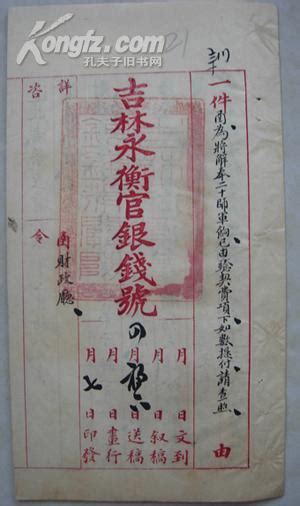 Kongfz.com
孔夫子旧书网
21
一件函為將解奉二十師軍餉已由驗契費項下如數撥付請查照由
月 日文到
月 日叙稿
月 日送稿
月 日畫行
月七日印發
吉林永衡官銀錢號
詳
咨
令
函財政廳